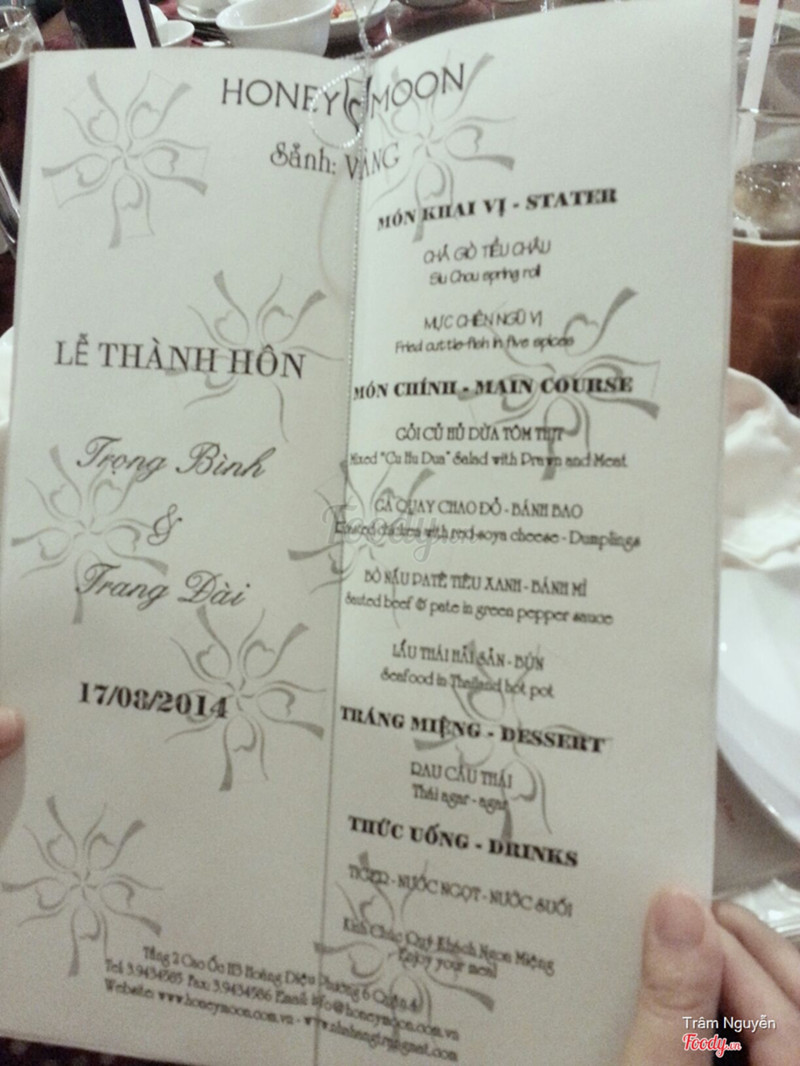 HONEY MOON
Sảnh: VÀNG
LỄ THÀNH HÔN
Trọng Bình
&
Trang Đài
17/08/2014
MÓN KHAI VỊ - STATER
CHẢ GIÒ TIỀU CHÂU
Siu Chou spring roll
MỰC CHIÊN NGŨ VỊ
Fried cuttle-fish in five spices
MÓN CHÍNH - MAIN COURSE
GỎI CỦ HỦ DỪA TÔM THỊT
Mixed "Cu Hu Dua" Salad with Prawn and Meat
GÀ QUAY CHAO ĐỎ - BÁNH BAO
chicken with red-soya cheese - Dumplings
BÒ NẤU PATÊ TIÊU XANH - BÁNH MÌ
beef & pate in green pepper sauce
LẨU THÁI HẢI SẢN - BÚN
Seafood in Thailand hot pot
TRÁNG MIỆNG - DESSERT
RAU CÂU THÁI
Thái agar - agar
THỨC UỐNG - DRINKS
TIGER - NƯỚC NGỌT - NƯỚC SUỐI
Kính Chúc Quý Khách Ngon Miệng
Enjoy your meal
Tầng 2 Cao Ốc H3 Hoàng Diệu Phường 6 Quận 4
Tel: 3.9434585 Fax: 3.9434586 Email: info@honeymoon.com.vn
Website: www.honeymoon.com.vn -
Foody.vn
Trâm Nguyễn
Foody.vn